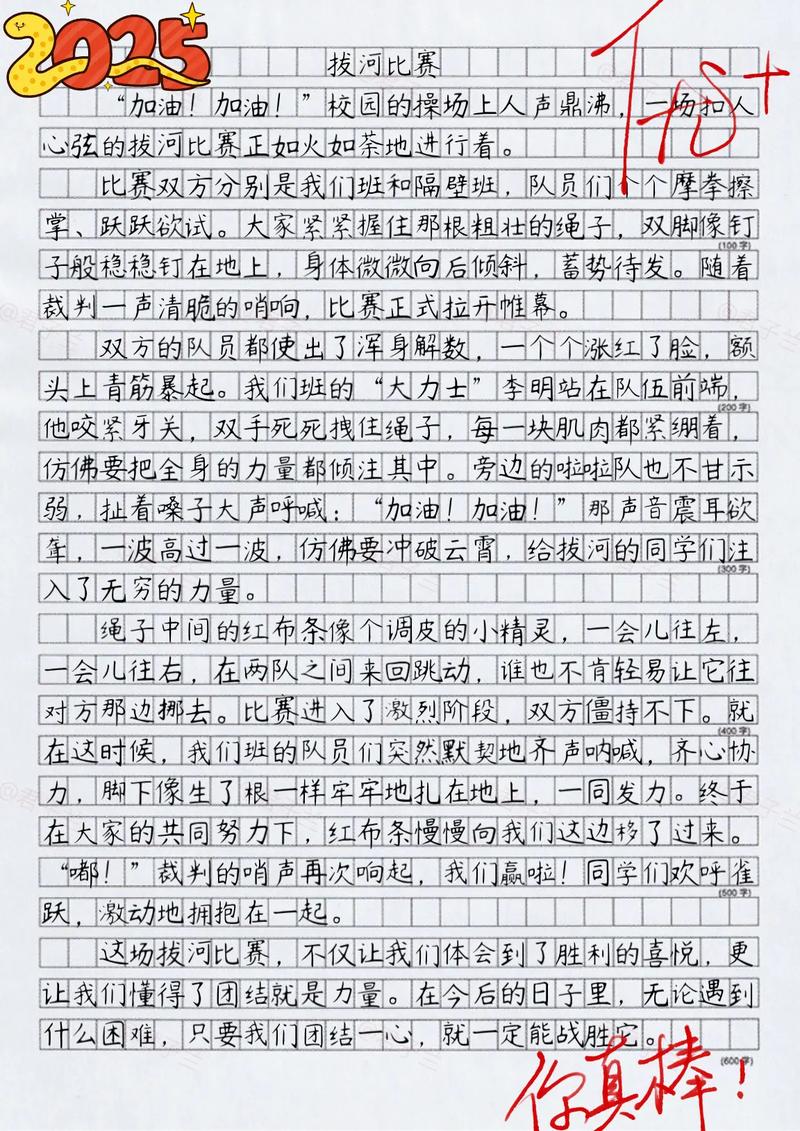 2025
拔河比赛
优+
“加油！加油！”校园的操场上人声鼎沸，一场扣人
心弦的拔河比赛正如火如荼地进行着。
比赛双方分别是我们班和隔壁班，队员们个个摩拳擦
掌、跃跃欲试。大家紧紧握住那根粗壮的绳子，双脚像钉
(100字)
子般稳稳钉在地上，身体微微向后倾斜，蓄势待发。随着
裁判一声清脆的哨响，比赛正式拉开帷幕。
双方的队员都使出了浑身解数，一个个涨红了脸，额
头上青筋暴起。我们班的“大力士”李明站在队伍前端，
(200字)
他咬紧牙关，双手死死拽住绳子，每一块肌肉都紧绷着，
仿佛要把全身的力量都倾注其中。旁边的啦啦队也不甘示
弱，扯着嗓子大声呼喊：“加油！加油！”那声音震耳欲
聋，一波高过一波，仿佛要冲破云霄，给拔河的同学们注
(300字)
入了无穷的力量。
绳子中间的红布条像个调皮的小精灵，一会儿往左，
一会儿往右，在两队之间来回跳动，谁也不肯轻易让它往
对方那边挪去。比赛进入了激烈阶段，双方僵持不下。就
(400字)
在这时候，我们班的队员们突然默契地齐声呐喊，齐心协
力，脚下像生了根一样牢牢地扎在地上，一同发力。终于
在大家的共同努力下，红布条慢慢向我们这边移了过来。
“嘟！”裁判的哨声再次响起，我们赢啦！同学们欢呼雀
(500字)
跃，激动地拥抱在一起。
这场拔河比赛，不仅让我们体会到了胜利的喜悦，更
让我们懂得了团结就是力量。在今后的日子里，无论遇到
什么困难，只要我们团结一心，就一定能战胜它。
(600字)
你真棒！